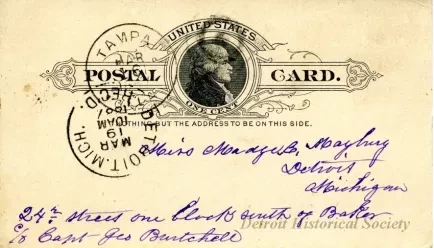 UNITED STATES
POSTAL CARD.
ONE CENT
NOTHING BUT THE ADDRESS TO BE ON THIS SIDE.
TAMPA
MAR
REC'D.
DETROIT, MICH.
MAR
19
10AM
Miss Madge G. Maybury
Detroit
Michigan
24th street one block south of Baker
c/o Capt Geo Burtchell
Detroit Historical Society